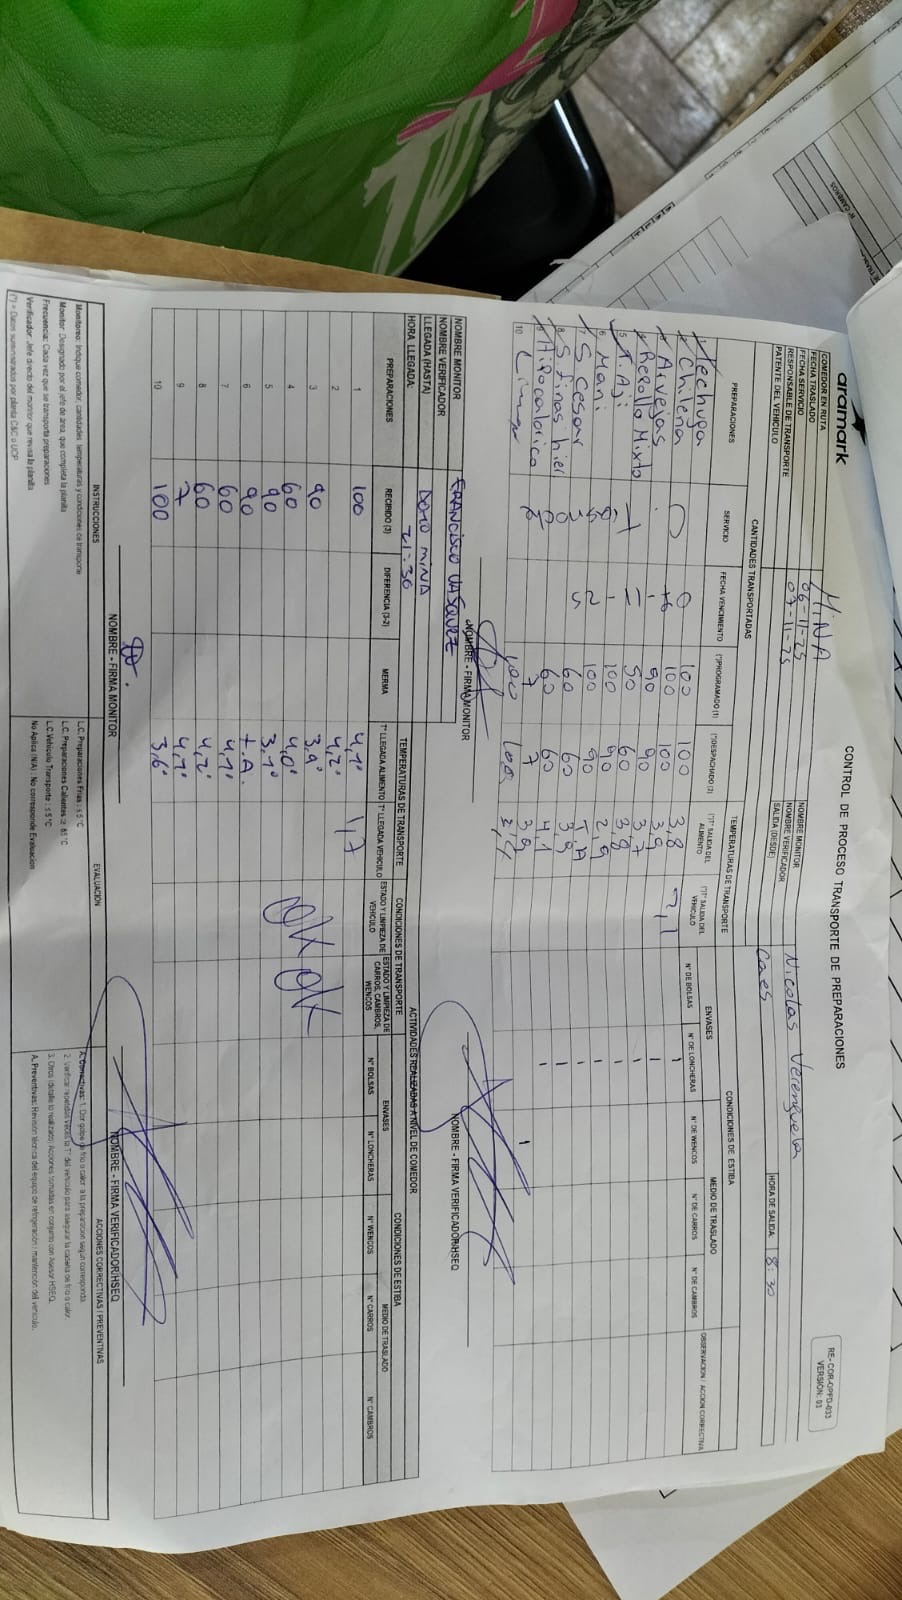 aramark
CONTROL DE PROCESO TRANSPORTE DE PREPARACIONES
RE-COR-OPFD-033
VERSIÓN: 03
COMEDOR EN RUTA MINA
FECHA TRASLADO 06-11-25 NOMBRE MONITOR Nicolas Verenguela
FECHA SERVICIO 07-11-25 NOMBRE VERIFICADOR
RESPONSABLE DE TRANSPORTE SALIDA (DESDE) HORA DE SALIDA: 8:30
PATENTE DEL VEHICULO
CANTIDADES TRANSPORTADAS TEMPERATURAS DE TRANSPORTE CONDICIONES DE ESTIBA
ENVASES MEDIO DE TRASLADO
PREPARACIONES SERVICIO FECHA VENCIMIENTO (*)PROGRAMADO (1) (*)DESPACHADO (2) (*)T° SALIDA DEL ALIMENTO (*)T° SALIDA DEL VEHICULO N° DE BOLSAS N° DE LONCHERAS N° DE WENCOS N° DE CARROS N° DE CAMBROS OBSERVACION / ACCION CORRECTIVA
Lechuga 100 100 3,8
Chilena 100 100 3,9
Arvejas 90 90 3,7
Repollo Mixto 90 60 3,8
T. Aji 100 90 2,9
6 Mani 100 90 T.A
S Cesar 60 60 3,9
8 S finas hier 60 60 4,1
Hipocalorico 7 7 3,9
10 100
NOMBRE - FIRMA MONITOR NOMBRE - FIRMA VERIFICADOR/HSEQ
NOMBRE MONITOR FRANCISCO VASQUEZ
NOMBRE VERIFICADOR
LLEGADA (HASTA) DOMO MINA
HORA LLEGADA: 21:30
ACTIVIDADES REALIZADAS A NIVEL DE COMEDOR
TEMPERATURAS DE TRANSPORTE CONDICIONES DE TRANSPORTE CONDICIONES DE ESTIBA
ENVASES MEDIO DE TRASLADO
PREPARACIONES RECIBIDO (3) DIFERENCIA (3-2) MERMA T° LLEGADA ALIMENTO T° LLEGADA VEHICULO ESTADO Y LIMPIEZA DE VEHICULO ESTADO Y LIMPIEZA DE CARROS, CAMBROS, WENCOS N° BOLSAS N° LONCHERAS N° WENCOS N° CARROS N° CAMBROS
1 100 4,1°
2 4,2° 1,7
3 90 3,9°
4 60 4,0° OK OK
5 90 3,1°
6 90 T.A.
7 60 4,1°
8 60 4,2°
9 7 4,1°
10 100 3,6°
NOMBRE - FIRMA MONITOR NOMBRE - FIRMA VERIFICADOR/HSEQ
INSTRUCCIONES EVALUACIÓN ACCIONES CORRECTIVAS / PREVENTIVAS
Monitoreo: Indique comedor, cantidades, temperaturas y condiciones de transporte
Monitor: Designado por el jefe de área, que completa la planilla
Frecuencia: Cada vez que se transporta preparaciones
Verificador: Jefe directo del monitor, que revisa la planilla
(*) = Datos suministrados por planta C&C o UCP
L.C. Preparaciones Frías : ≤ 5 °C
L.C. Preparaciones Calientes ≥ 65 °C
L.C. Vehiculo Transporte : ≤ 5 °C
No Aplica (N/A) : No corresponde Evaluacion
A. Correctivas: 1. Dar golpe de frio o calor a la preparacion según corresponda.
2. Verificar repetidas veces la T° del vehiculo para asegurar la cadena de frio o calor.
3. Otros (detalle lo realizado) Acciones tomadas en conjunto con Asesor HSEQ.
A. Preventivas: Revisión técnica del equipo de refrigeración / mantención del vehículo.